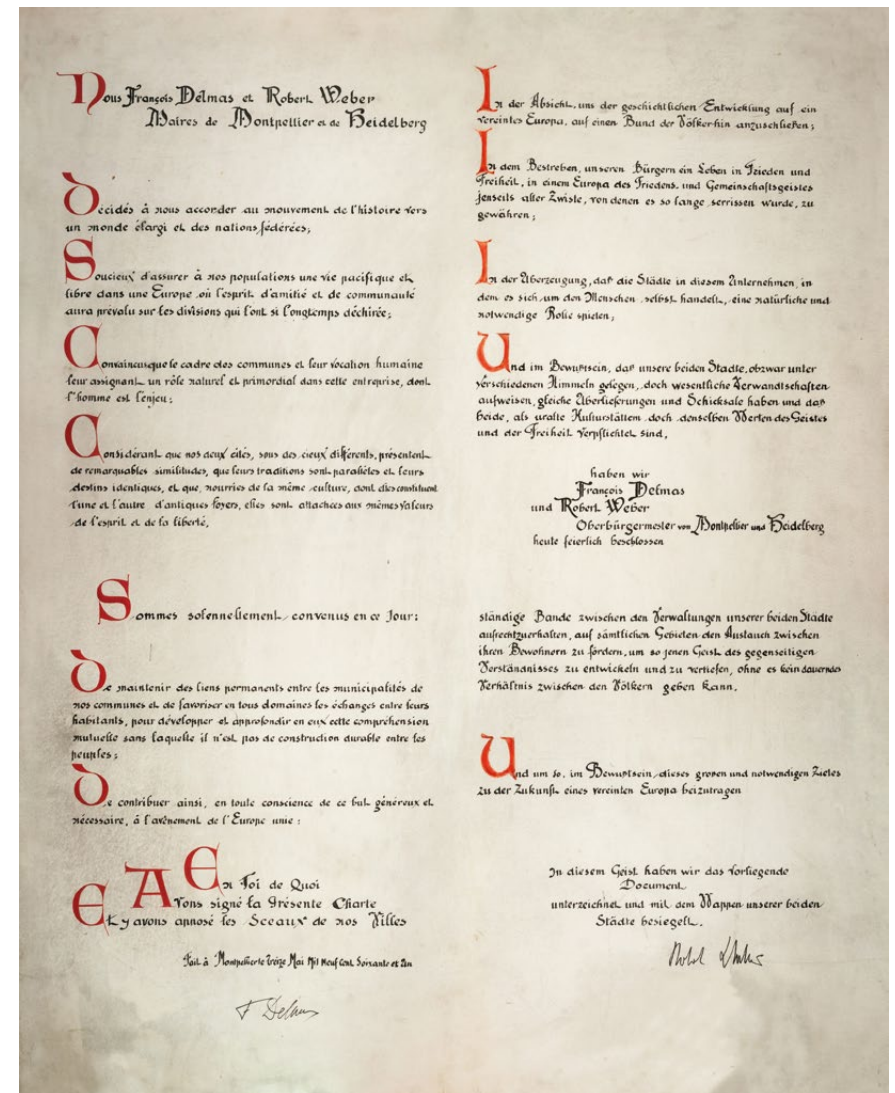 Nous François Delmas et Robert Weber
Maires de Montpellier et de Heidelberg
Décidés à nous accorder au mouvement de l'histoire vers
un monde élargi et des nations fédérées;
Soucieux d'assurer à nos populations une vie pacifique et
libre dans une Europe où l'esprit d'amitié et de communauté
aura prévalu sur les divisions qui l'ont si longtemps déchirée;
Convaincus que le cadre des communes et leur vocation humaine
leur assignent un rôle naturel et primordial dans cette entreprise, dont
l'homme est l'enjeu;
Considérant que nos deux cités, sous des cieux différents, présentent
de remarquables similitudes, que leurs traditions sont parallèles et leurs
destins identiques, et que, nourries de la même culture, dont elles constituent
l'une et l'autre d'antiques foyers, elles sont attachées aux mêmes valeurs
de l'esprit et de la liberté,
Sommes solennellement convenus en ce Jour:
De maintenir des liens permanents entre les municipalités de
nos communes et de favoriser en tous domaines les échanges entre leurs
habitants, pour développer et approfondir en eux cette compréhension
mutuelle sans laquelle il n'est pas de construction durable entre les
peuples;
De contribuer ainsi, en toute conscience de ce but généreux et
nécessaire, à l'avènement de l'Europe unie:
En Foi de Quoi
Avons signé la Présente Charte
Et y avons apposé les Sceaux de nos Villes
Fait à Montpellier le treize Mai Mil Neuf Cent Soixante et Un
F Delmas
In der Absicht, uns der geschichtlichen Entwicklung auf ein
vereintes Europa, auf einen Bund der Völker hin anzuschließen;
In dem Bestreben, unseren Bürgern ein Leben in Frieden und
Freiheit, in einem Europa des Friedens, und Gemeinschaftsgeistes
jenseits alter Zwiste, von denen es so lange zerrissen wurde, zu
gewähren;
In der Überzeugung, daß die Städte in diesem Unternehmen, in
dem es sich um den Menschen selbst handelt, eine natürliche und
notwendige Rolle spielen;
Und im Bewußtsein, daß unsere beiden Städte, obzwar unter
verschiedenen Himmeln gelegen, doch wesentliche Verwandtschaften
aufweisen, gleiche Überlieferungen und Schicksale haben und daß
beide, als uralte Kulturstättem doch denselben Werten des Geistes
und der Freiheit verpflichtet sind,
haben wir
François Delmas
und Robert Weber
Oberbürgermester von Montpellier und Heidelberg
heute feierlich beschlossen
ständige Bande zwischen den Verwaltungen unserer beiden Städte
aufrechtzuerhalten, auf sämtlichen Gebieten den Austausch zwischen
ihren Bewohnorn zu fördern, um so jenen Geist des gegenseitigen
Verständnisses zu entwickeln und zu vertiefen, ohne es kein dauerndes
Verhältnis zwischen den Völkern geben kann.
Und um so, im Bewußtsein dieses großen und notwendigen Zieles
zu der Zukunft eines vereinten Europa beizutragen
In diesem Geist haben wir das vorliegende
Document
unterzeichnet und mit dem Wappen unserer beiden
Städte besiegelt.